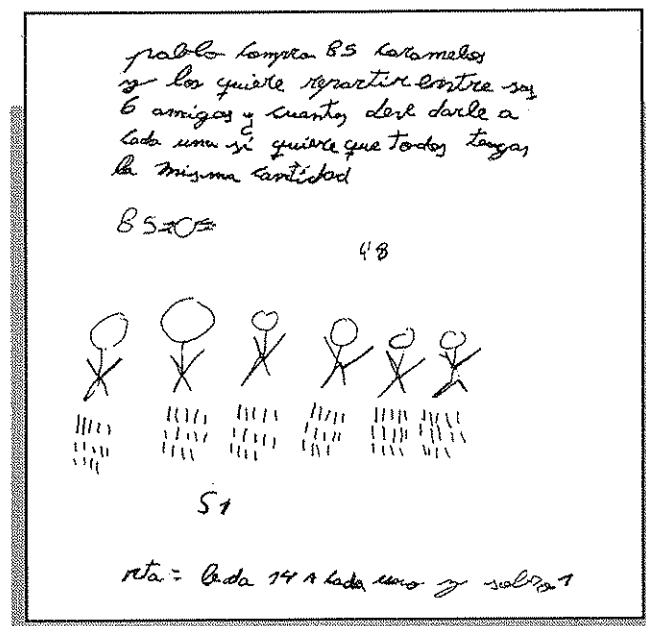 pablo compra 85 caramelos
y los quiere repartir entre sus
6 amigos y cuantos deve darle a
cada una si quiere que todos tengas
la misma cantidad
85
48
51
rta = le da 14 A cada uno y sobra 1